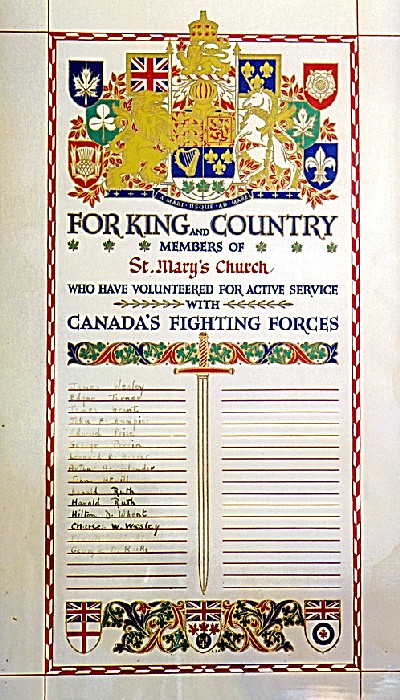 A MARI USQUE AD MARE
FOR KING AND COUNTRY
MEMBERS OF
St. Mary's Church
WHO HAVE VOLUNTEERED FOR ACTIVE SERVICE
WITH
CANADA'S FIGHTING FORCES
James Wesley
Edgar Turner
James Grant
John E.
Edward Price
George
Leonard
Arthur
Ruth
Harold Ruth
Hilton D. Whent
Charles W. Wesley
George